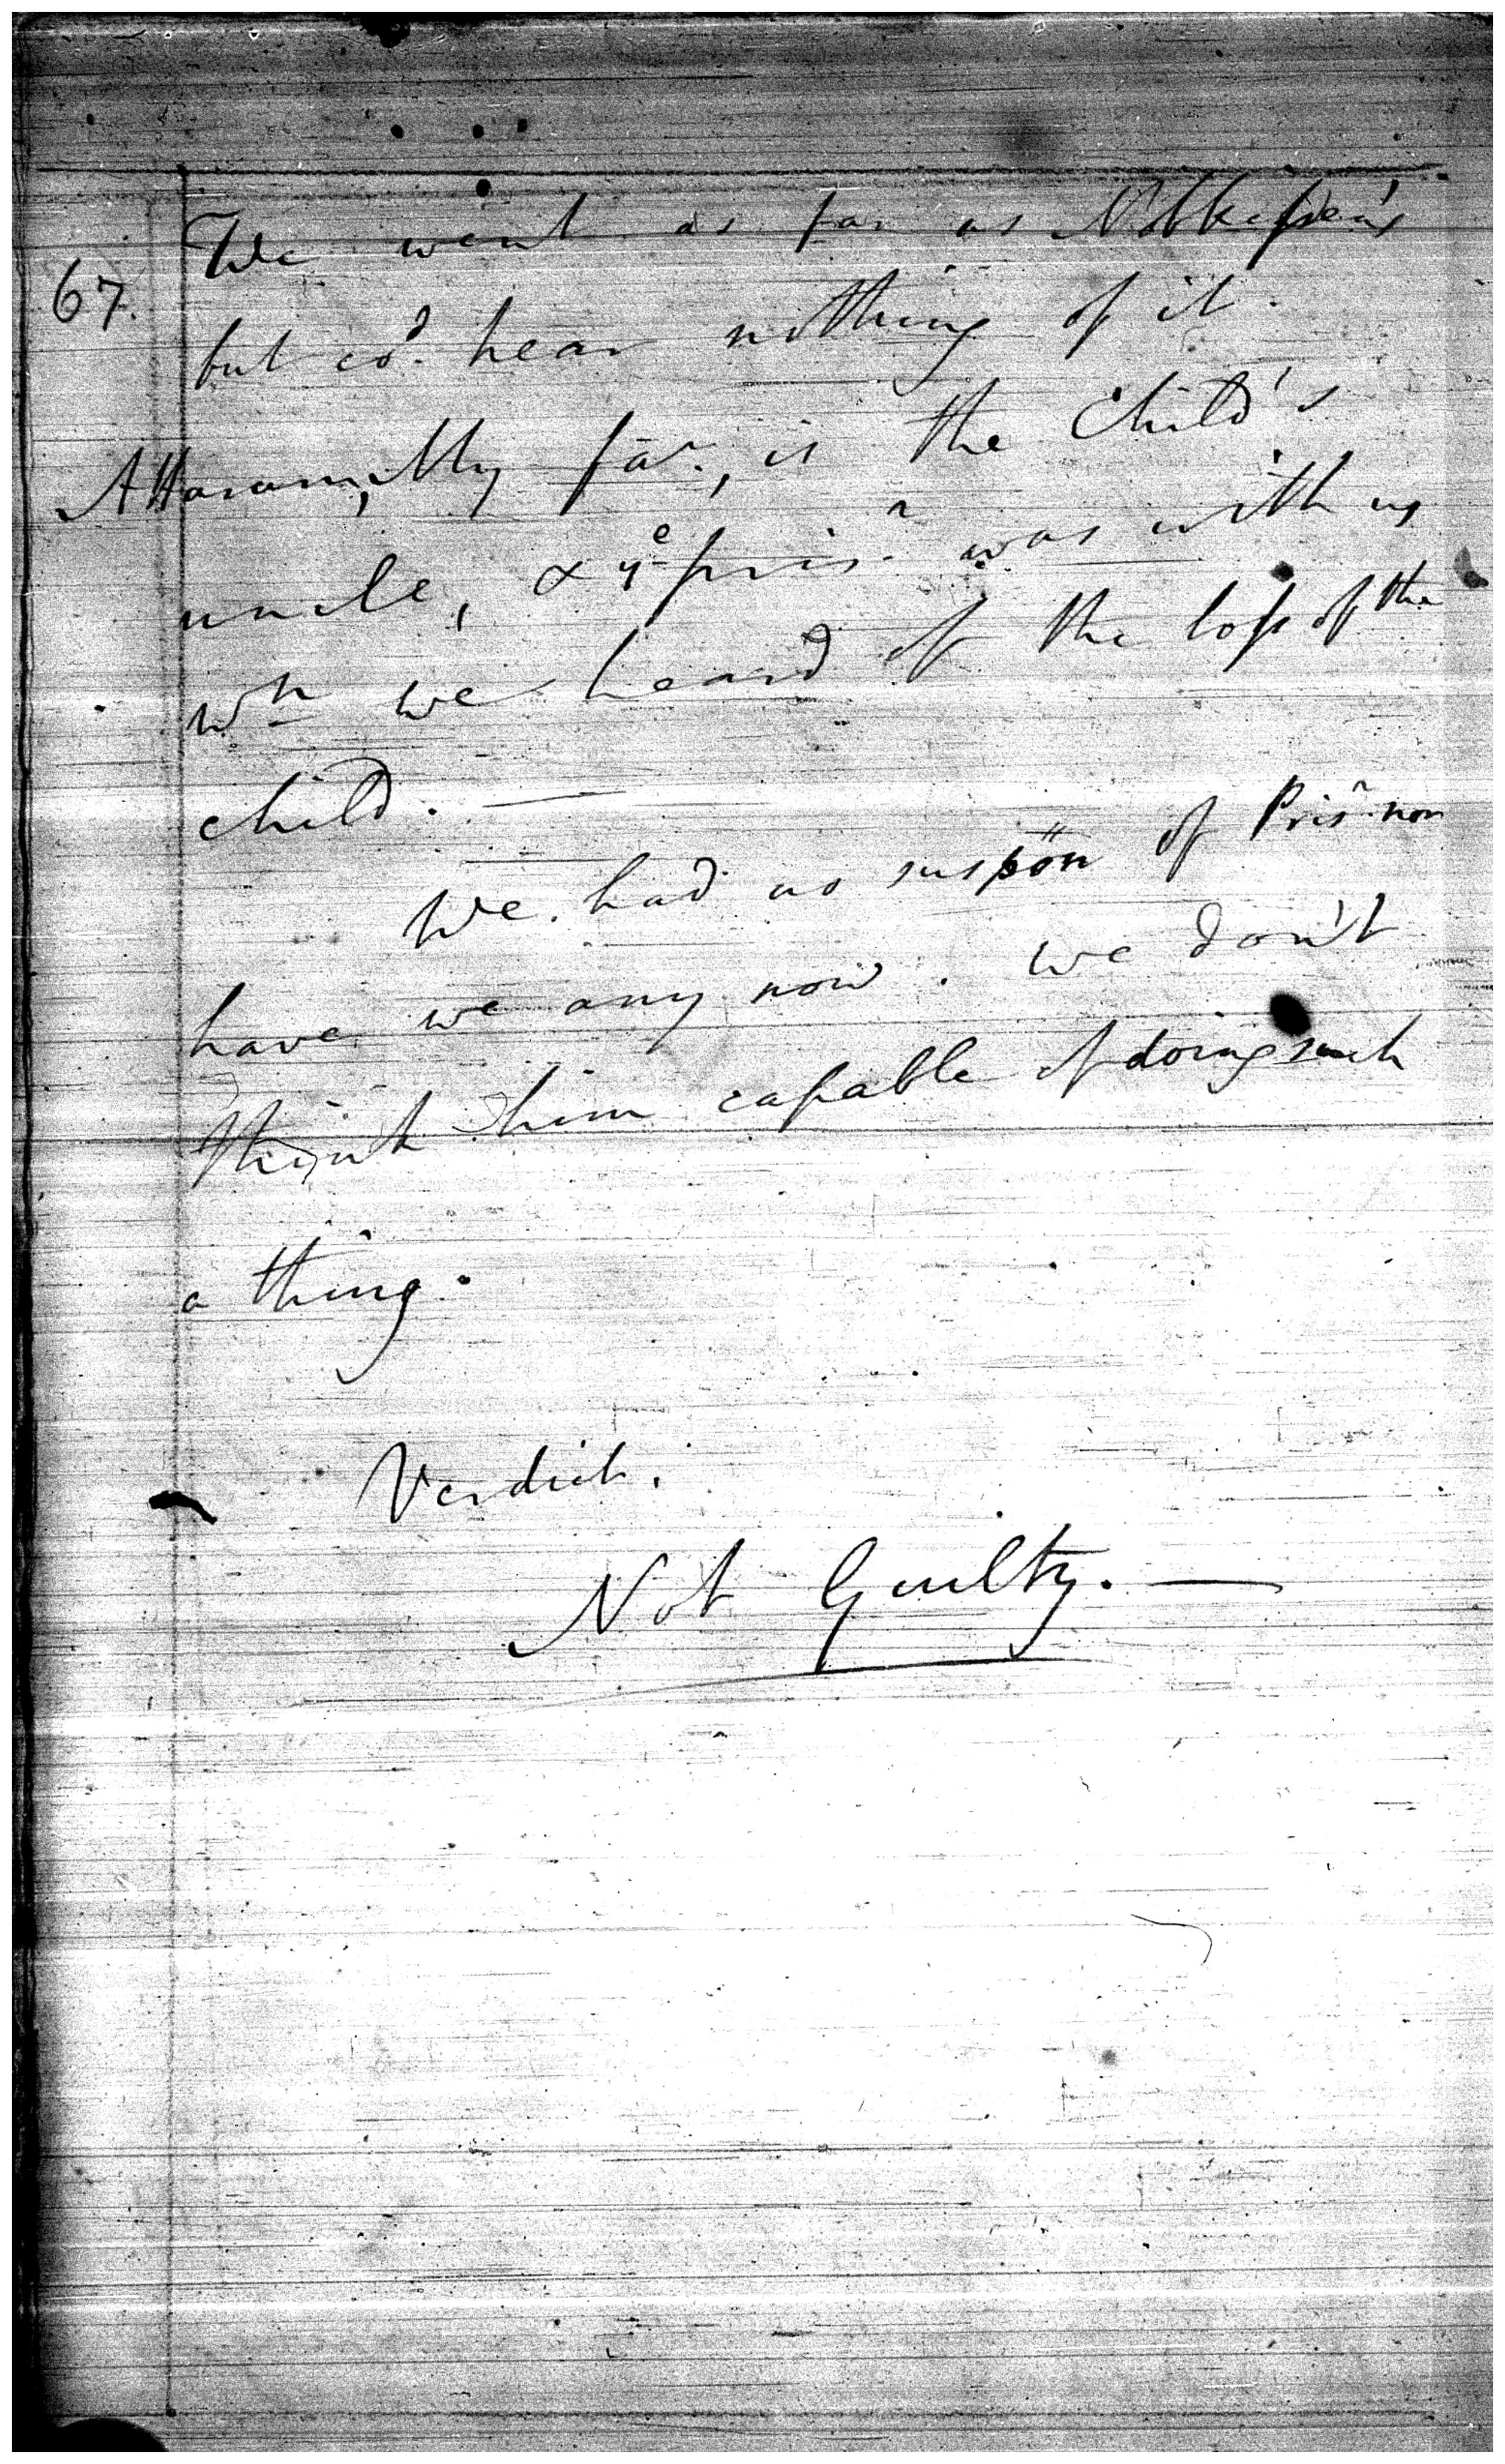 67.
We went as far as
but cod. hear nothing of it.
My far., is the Child's
uncle, & ye prisr. was with us
wn we heard of the loss of the
child. —
We had no suspön of Prisr. nor
have we any now. We don't
think him capable of doing such
a thing.
Verdict.
Not Guilty. —